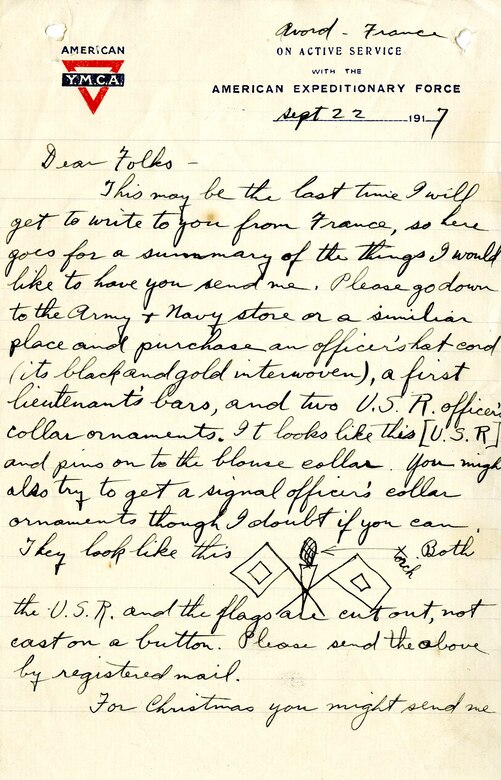 Avord - France
AMERICAN
Y.M.C.A.
ON ACTIVE SERVICE
WITH THE
AMERICAN EXPEDITIONARY FORCE
Sept 22 1917
Dear Folks -
This may be the last time I will
get to write to you from France, so here
goes for a summary of the things I would
like to have you send me. Please go down
to the Army + Navy store or a similiar
place and purchase an officer's hat cord
(its black and gold interwoven), a first
lieutenant's bars, and two U.S.R. officer's
collar ornaments. It looks like this [U.S.R]
and pins on to the blouse collar. You migh
also try to get a signal officer's collar
ornaments though I doubt if you can.
They look like this torch. Both
the U.S.R. and the flags are cut out, not
cast on a button. Please send the above
by registered mail.
For Christmas you might send me